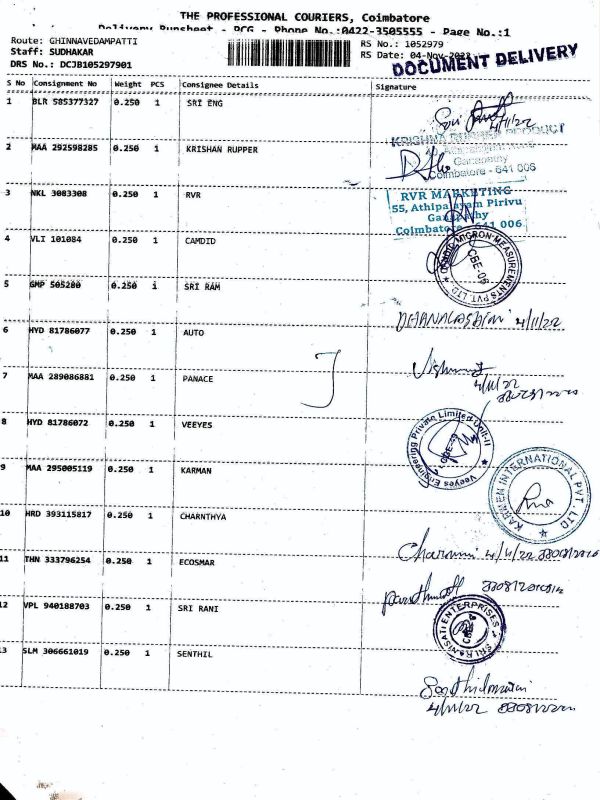 THE PROFESSIONAL COURIERS, Coimbatore
Delivery Runsheet - PCG - Phone No.:0422-3505555 - Page No.:1
Route: GHINNAVEDAMPATTI
RS No.: 1052979
Staff: SUDHAKAR
RS Date: 04-Nov-2022
DRS No.: DCJB105297901
DOCUMENT DELIVERY
S No Consignment No Weight PCS Consignee Details Signature
1 BLR 585377327 0.250 1 SRI ENG
4/11/22
2 MAA 292598285 0.250 1 KRISHAN RUPPER
KRISHNA RUBBER PRODUCT
Ganapathy
Coimbatore - 641 006
3 NKL 3083308 0.250 1 RVR
RVR MARKETING
55, Athipalayam Pirivu
Ganapathy
Coimbatore - 641 006
4 VLI 101084 0.250 1 CAMDID
MICRON MEASUREMENTS PVT. LTD.
CBE-06
5 GMP 505280 0.250 1 SRI RAM
4/11/22
6 HYD 81786077 0.250 1 AUTO
7 MAA 289086881 0.250 1 PANACE
4/11/22
8 HYD 81786072 0.250 1 VEEYES
Veeyes Engineering Private Limited Unit-II
9 MAA 295005119 0.250 1 KARMAN
KARMEN INTERNATIONAL PVT. LTD
10 HRD 393115817 0.250 1 CHARNTHYA
4/11/22
11 THN 333796254 0.250 1 ECOSMAR
12 VPL 940188703 0.250 1 SRI RANI
SRI RANISATI ENTERPRISES
13 SLM 306661019 0.250 1 SENTHIL
4/11/22